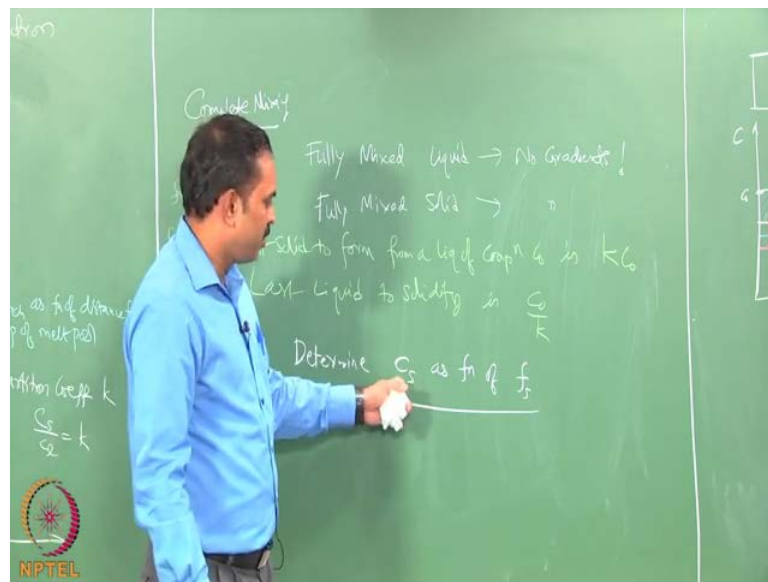 Complete Mixing
Fully Mixed Liquid → No Gradients!
Fully Mixed Solid → "
solid to form from a liq of Compⁿ C₀ is kC₀
Last Liquid to solidify is C₀/k
Determine Cₛ as fn of fₛ
as fn of distance
of melt pool)
Partition Coeff k
Cₛ/Cₗ = k
C
C₀
NPTEL